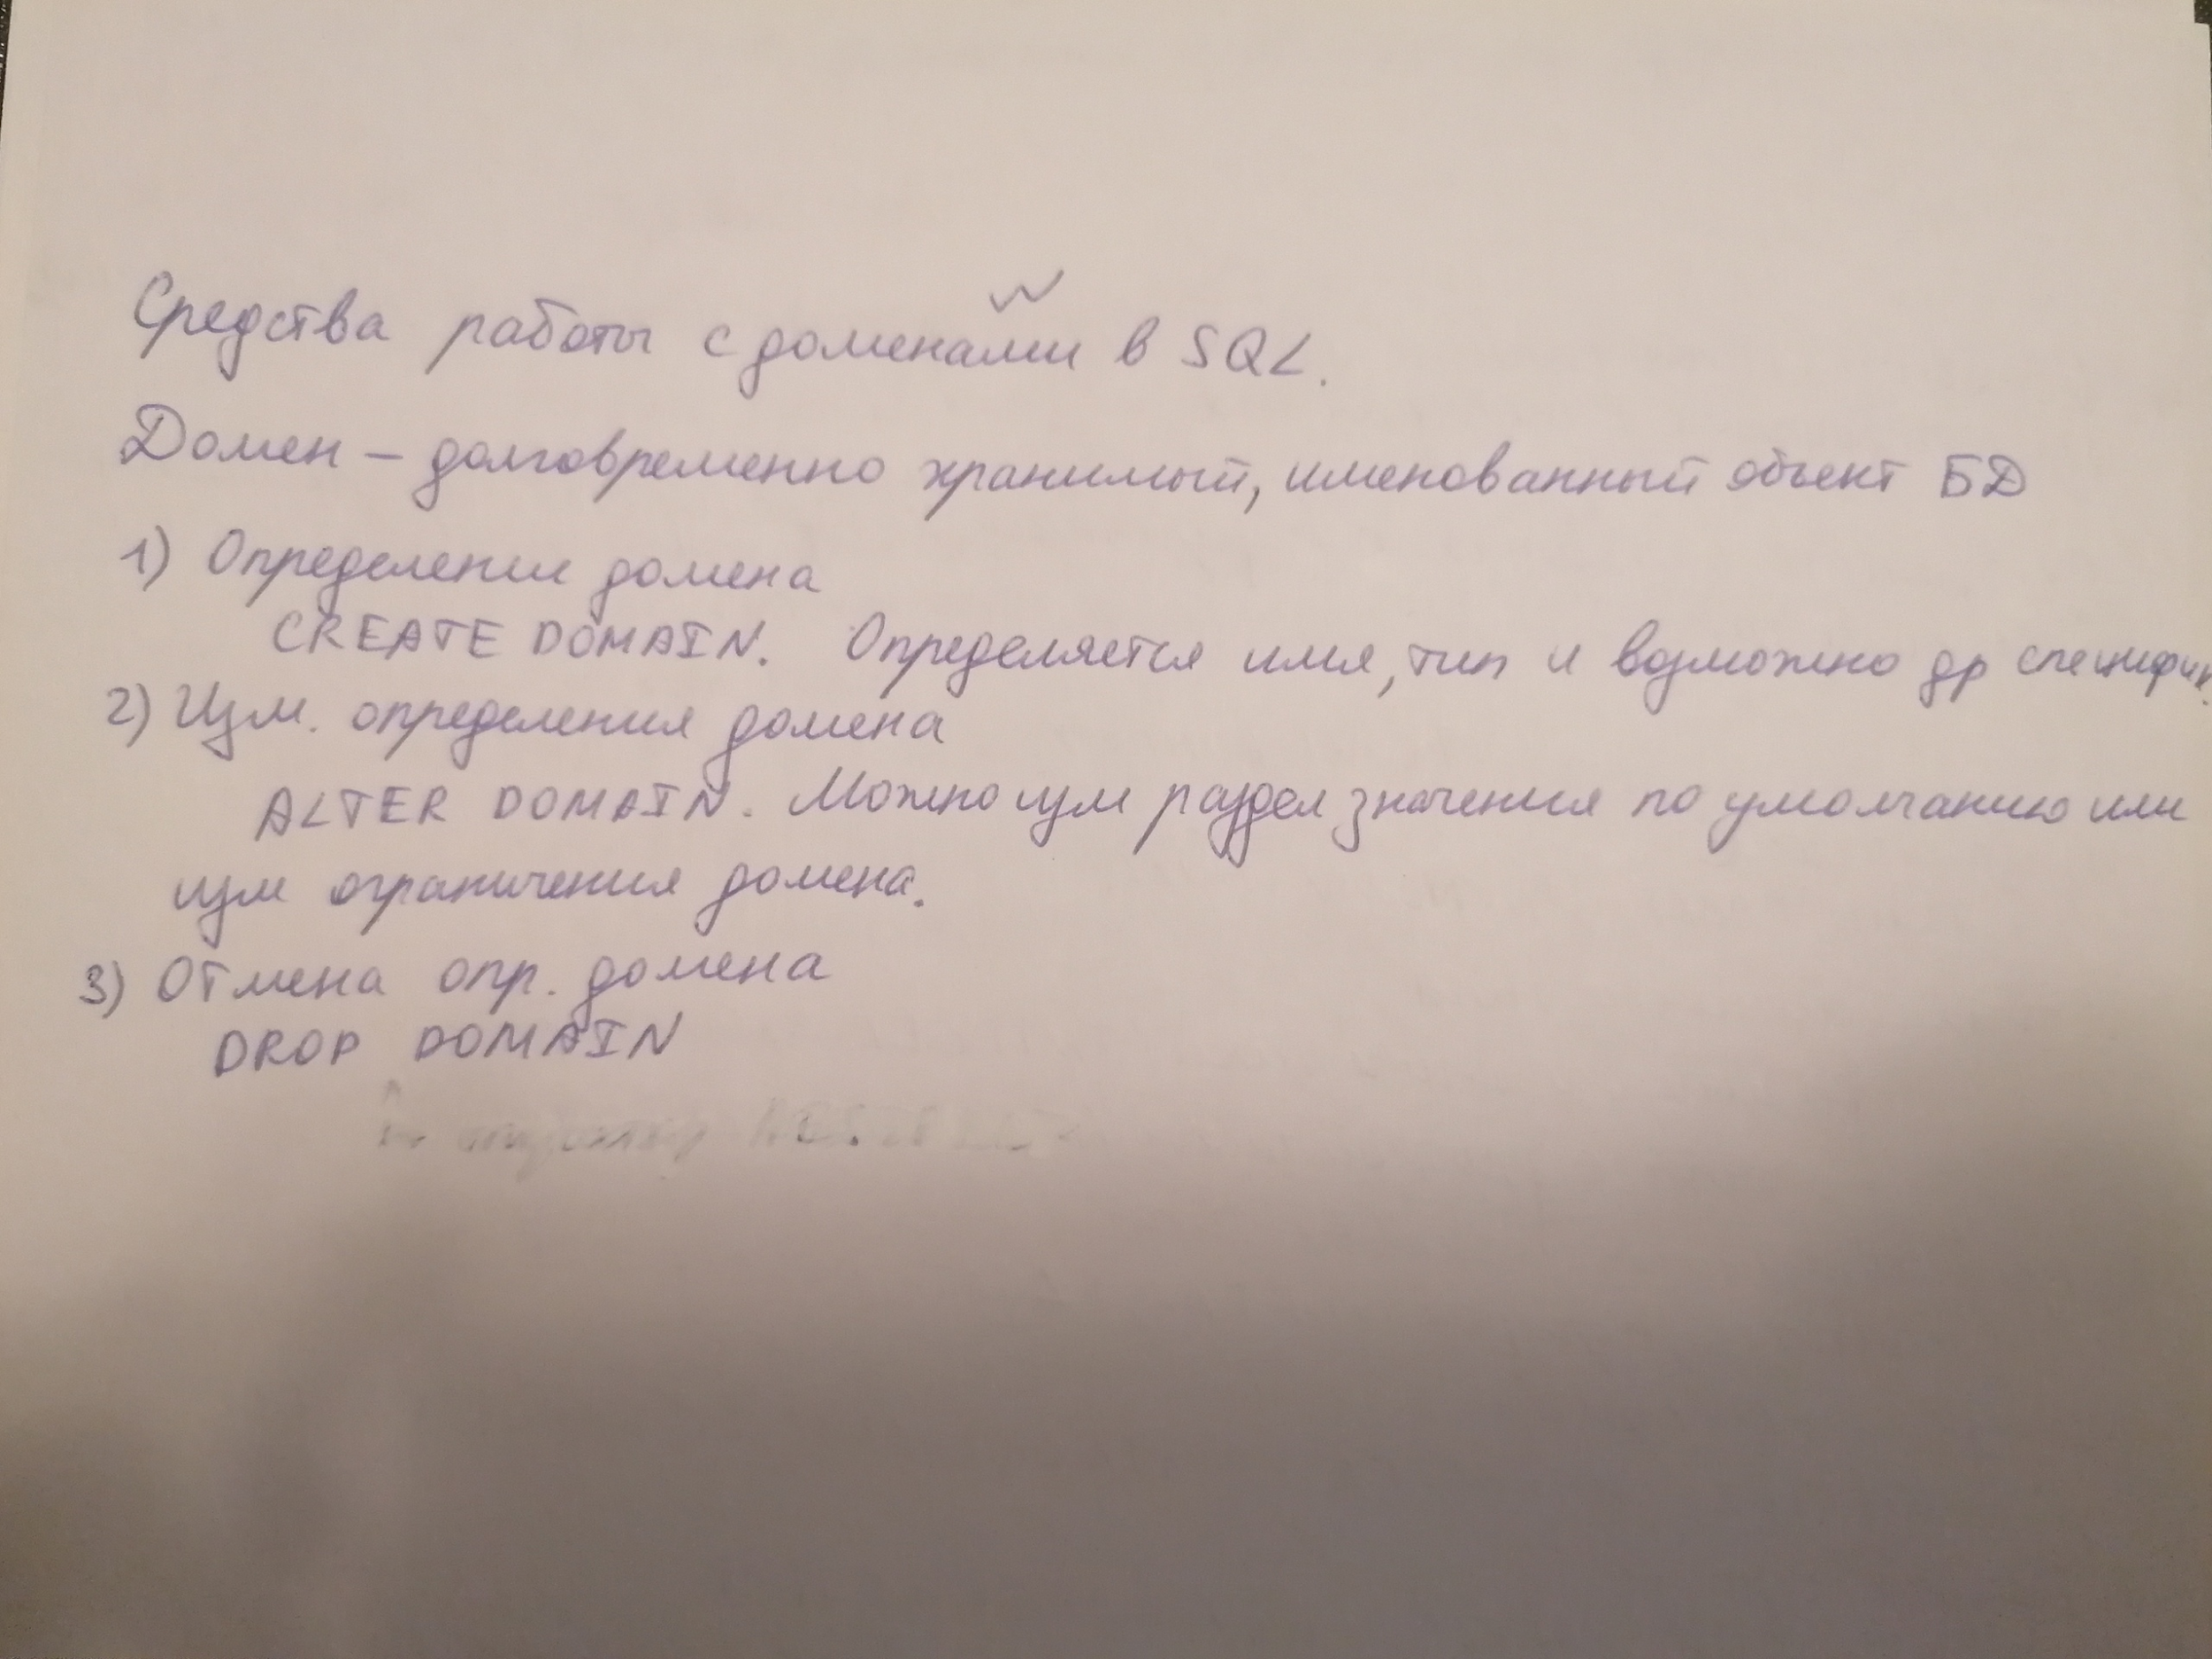 Средства работы с доменами в SQL.
Домен – долговременно хранимый, именованный объект БД
1) Определение домена
CREATE DOMAIN. Определяется имя, тип и возможно др специфик.
2) Изм. определения домена
ALTER DOMAIN. Можно изм раздел значения по умолчанию или
изм ограничения домена.
3) Отмена опр. домена
DROP DOMAIN